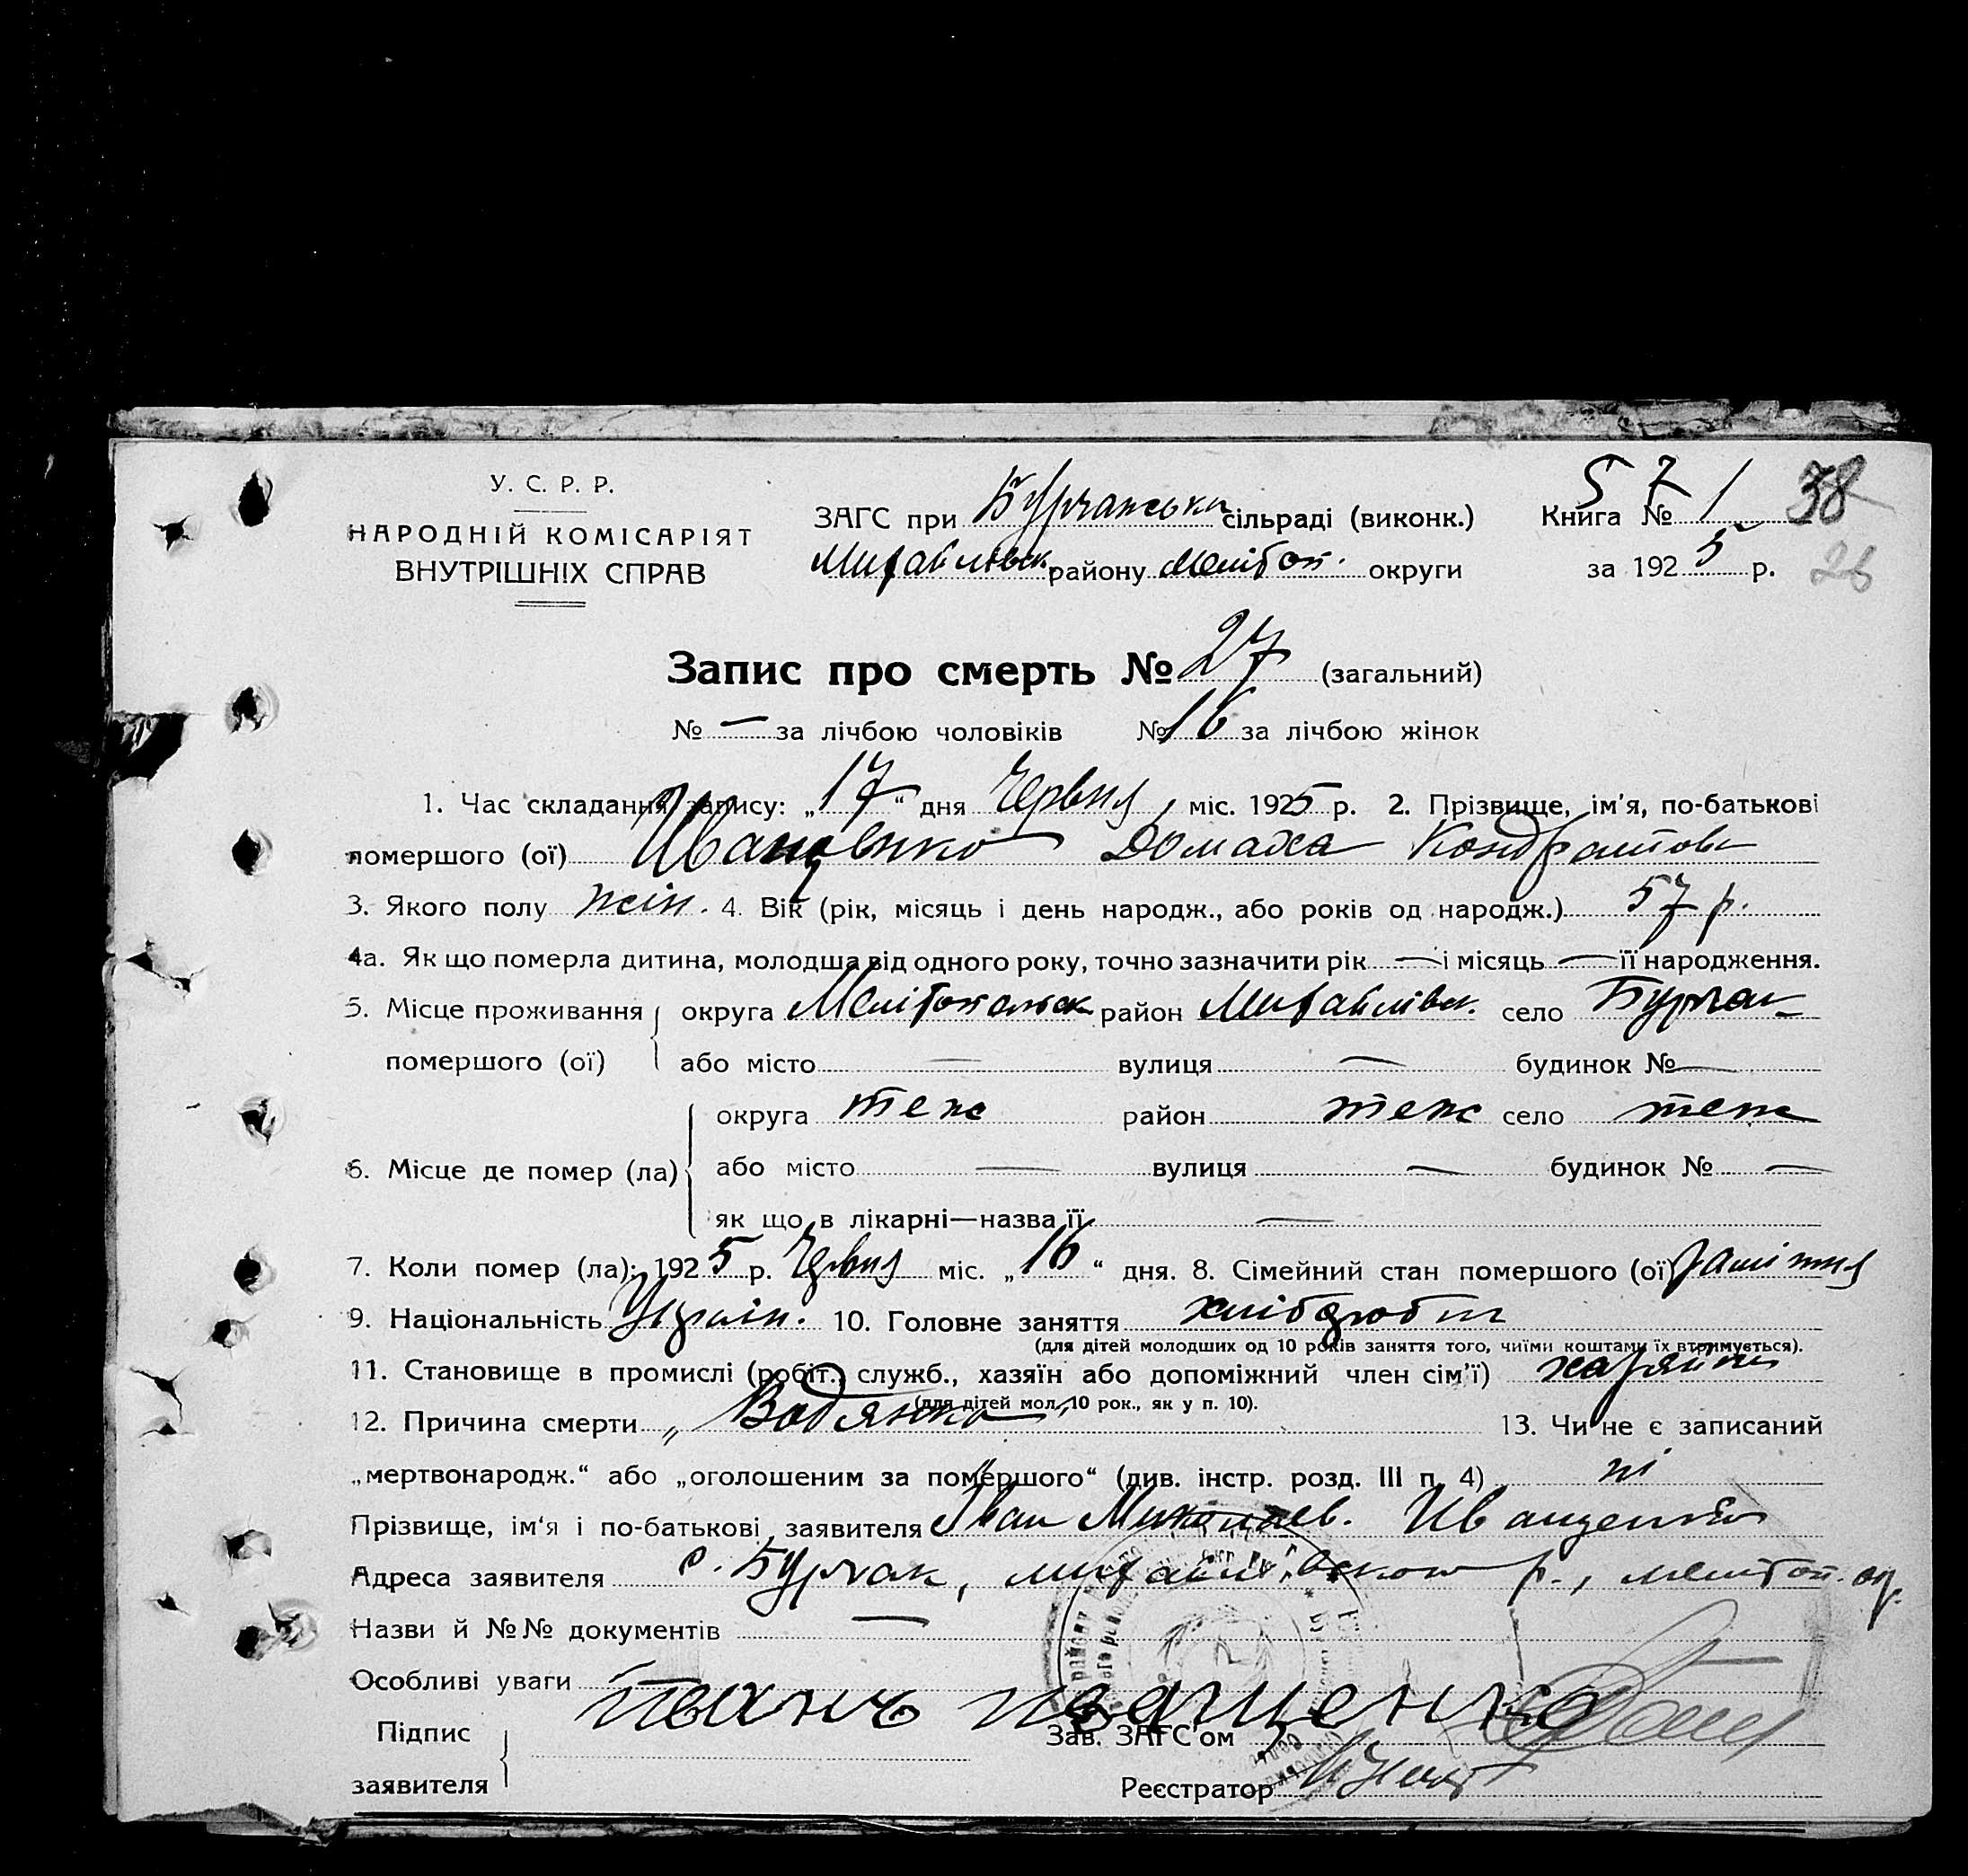 У. С. Р. Р.
НАРОДНІЙ КОМІСАРІЯТ
ВНУТРІШНІХ СПРАВ
ЗАГС при Бурчанськи сільраді (виконк.)
Михайлівск. району Меліто​п. округи
57 38
Книга № 1
за 1925 р. 26
Запис про смерть № 27 (загальний)
№ — за лічбою чоловіків № 16 за лічбою жінок
1. Час складання запису: „17“ дня Червня міс. 1925 р. 2. Прізвище, ім'я, по-батькові
помершого (ої) Иващенко Домаха Кондратова
3. Якого полу жін. 4. Вік (рік, місяць і день народж., або років од народж.) 57 р.
4а. Як що померла дитина, молодша від одного року, точно зазначити рік — і місяць — її народження.
5. Місце проживання помершого (ої) округа Мелітопольск район Михайлівск. село Бурчак
або місто — вулиця — будинок № —
6. Місце де помер (ла) округа теж район теж село теж
або місто — вулиця — будинок № —
як що в лікарні—назва її —
7. Коли помер (ла): 1925 р. Червня міс. „16“ дня. 8. Сімейний стан помершого (ої) замітня
9. Національність Україн. 10. Головне заняття хлібороб
(для дітей молодших од 10 років заняття того, чиїми коштами їх втримується).
11. Становище в промислі (робіт., служб., хазяїн або допоміжний член сім'ї) хазяйка
(для дітей мол. 10 рок., як у п. 10).
12. Причина смерти „Водянка“ 13. Чи не є записаний
„мертвонародж.“ або „оголошеним за помершого“ (див. інстр. розд. III п. 4) ні
Прізвище, ім'я і по-батькові заявителя Іван Миколаев. Иващенко
Адреса заявителя с. Бурчак, михайлівского р., мелітоп. ок.
Назви й №№ документів —
Особливі уваги
Иванъ Иващенко
Підпис заявителя
Зав. ЗАГС'ом
Реєстратор